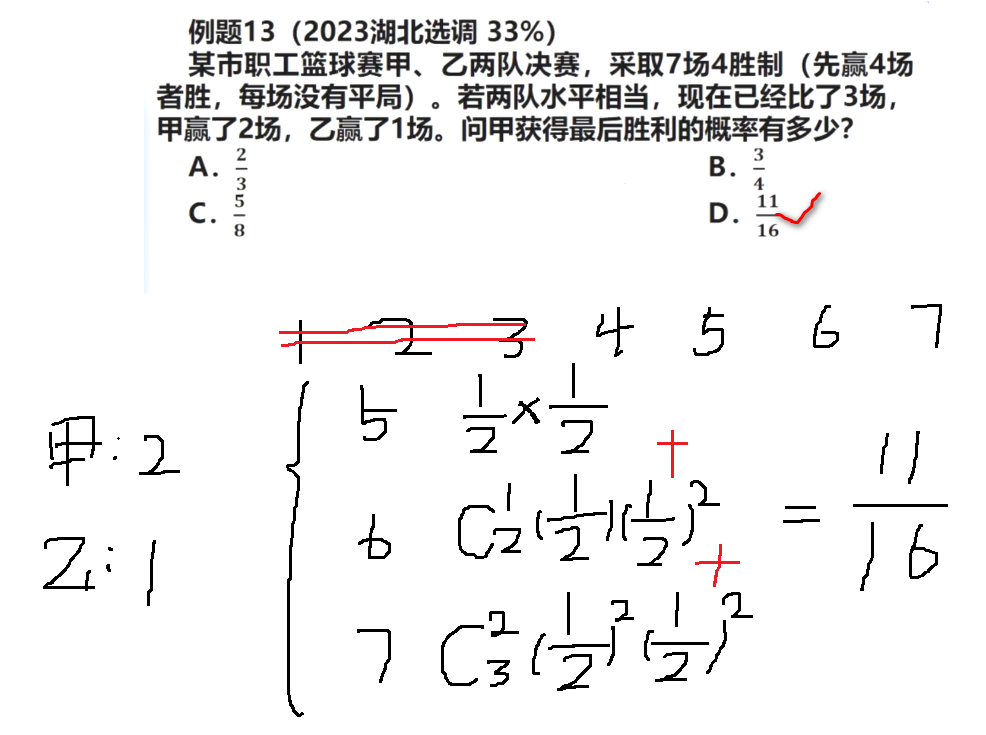 例题13（2023湖北选调 33%）
某市职工篮球赛甲、乙两队决赛，采取7场4胜制（先赢4场
者胜，每场没有平局）。若两队水平相当，现在已经比了3场，
甲赢了2场，乙赢了1场。问甲获得最后胜利的概率有多少？
A. 2/3 B. 3/4
C. 5/8 D. 11/16
1 2 3 4 5 6 7
甲: 2
乙: 1
5 1/2 × 1/2
+
6 C₂¹(1/2)(1/2)²
+
7 C₃²(1/2)²(1/2)²
= 11/16